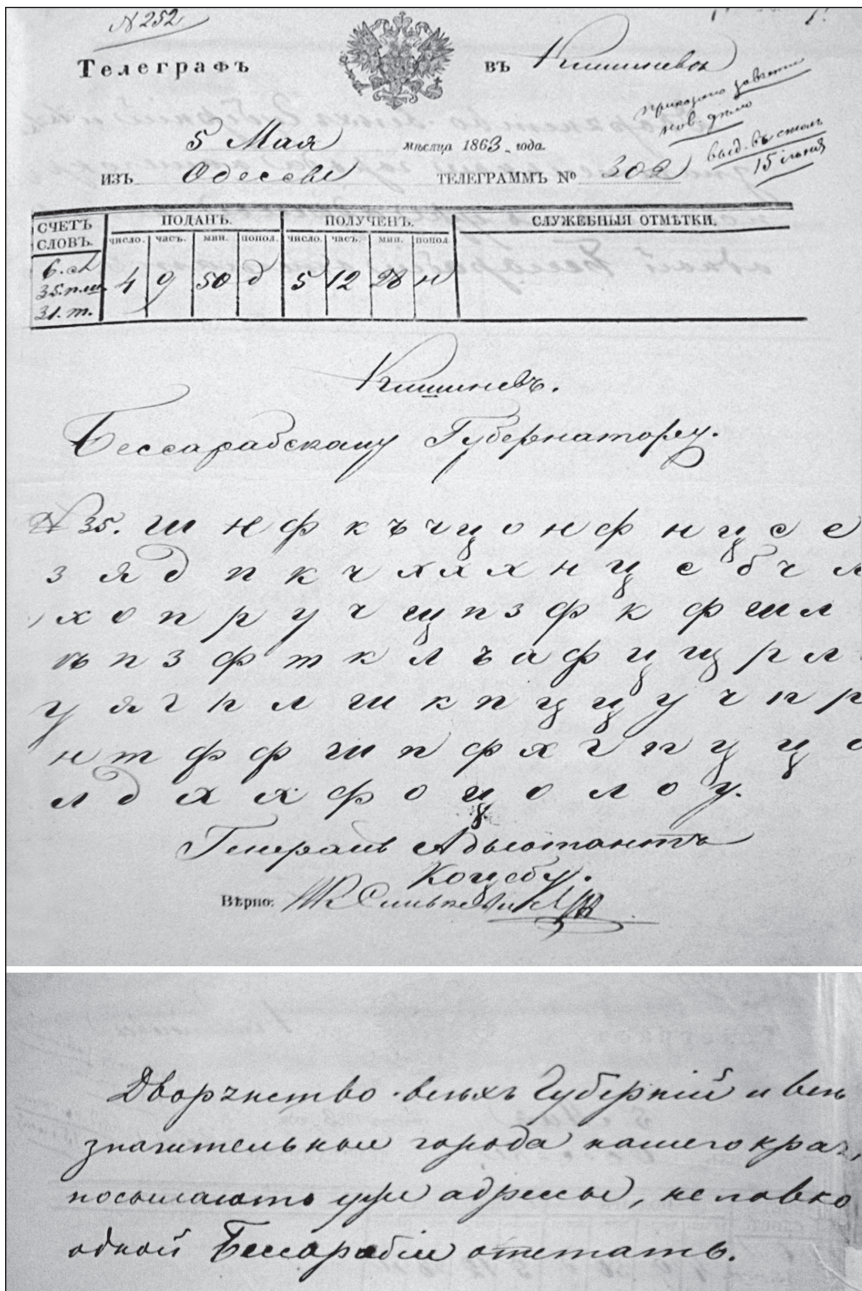 N 252
Телеграфъ въ Кишиневѣ
приказано завести
нов. дѣло
5 Мая мѣсяца 1863 года.
изъ Одессы телеграммъ № 302
въ столъ
15 Іюня
СЧЕТЪ СЛОВЪ. ПОДАНЪ. ПОЛУЧЕН. СЛУЖЕБНЫЯ ОТМѢТКИ.
число. часъ. мин. попол. число. час. мин. попол
6. сл.
35. п.ш. 4 9 50 д 5 12 28 н
31. т.
Кишиневъ.
Бессарабскому Губернатору.
N 35. ш н ф к ъ ч ц о н ф н ц с е
з я д п к ч х я х н ц с б ч
х о п р у ч щ п з ф к ф ш л
ъ п з ф т к л ъ а ф ц щ р л
у я г н л ш к п ц ц у ч н р
н т ф ф ш п ф х г п ц ц
л д я х ф о ц о л о у.
Генералъ Адьютантъ
Коцебу.
Вѣрно:
Дворянство всѣхъ Губерній и всѣ
значительные города нашего края,
посылаютъ уже адресы, неловко
одной Бессарабіи отстать.